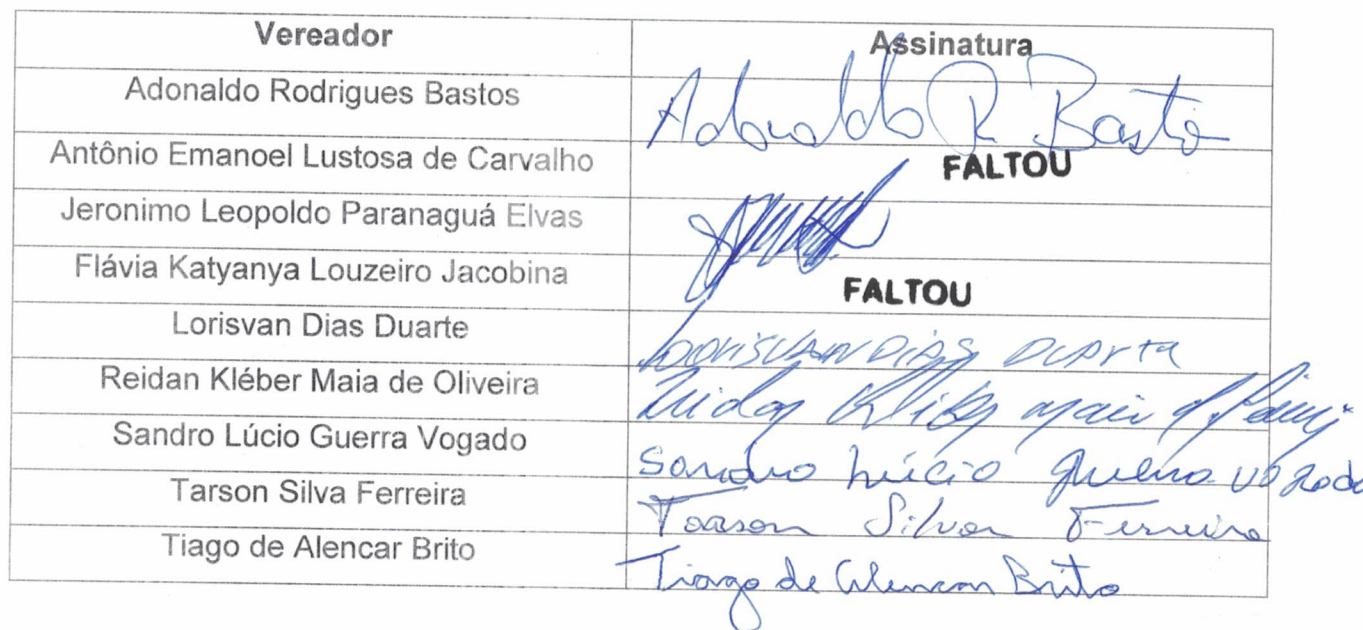 Vereador Assinatura
Adonaldo Rodrigues Bastos Adonaldo R Bastos
Antônio Emanoel Lustosa de Carvalho FALTOU
Jeronimo Leopoldo Paranaguá Elvas
Flávia Katyanya Louzeiro Jacobina FALTOU
Lorisvan Dias Duarte Lorisvan Dias Duarte
Reidan Kléber Maia de Oliveira
Sandro Lúcio Guerra Vogado Sandro Lúcio Guerra Vogado
Tarson Silva Ferreira Tarson Silva Ferreira
Tiago de Alencar Brito Tiago de Alencar Brito